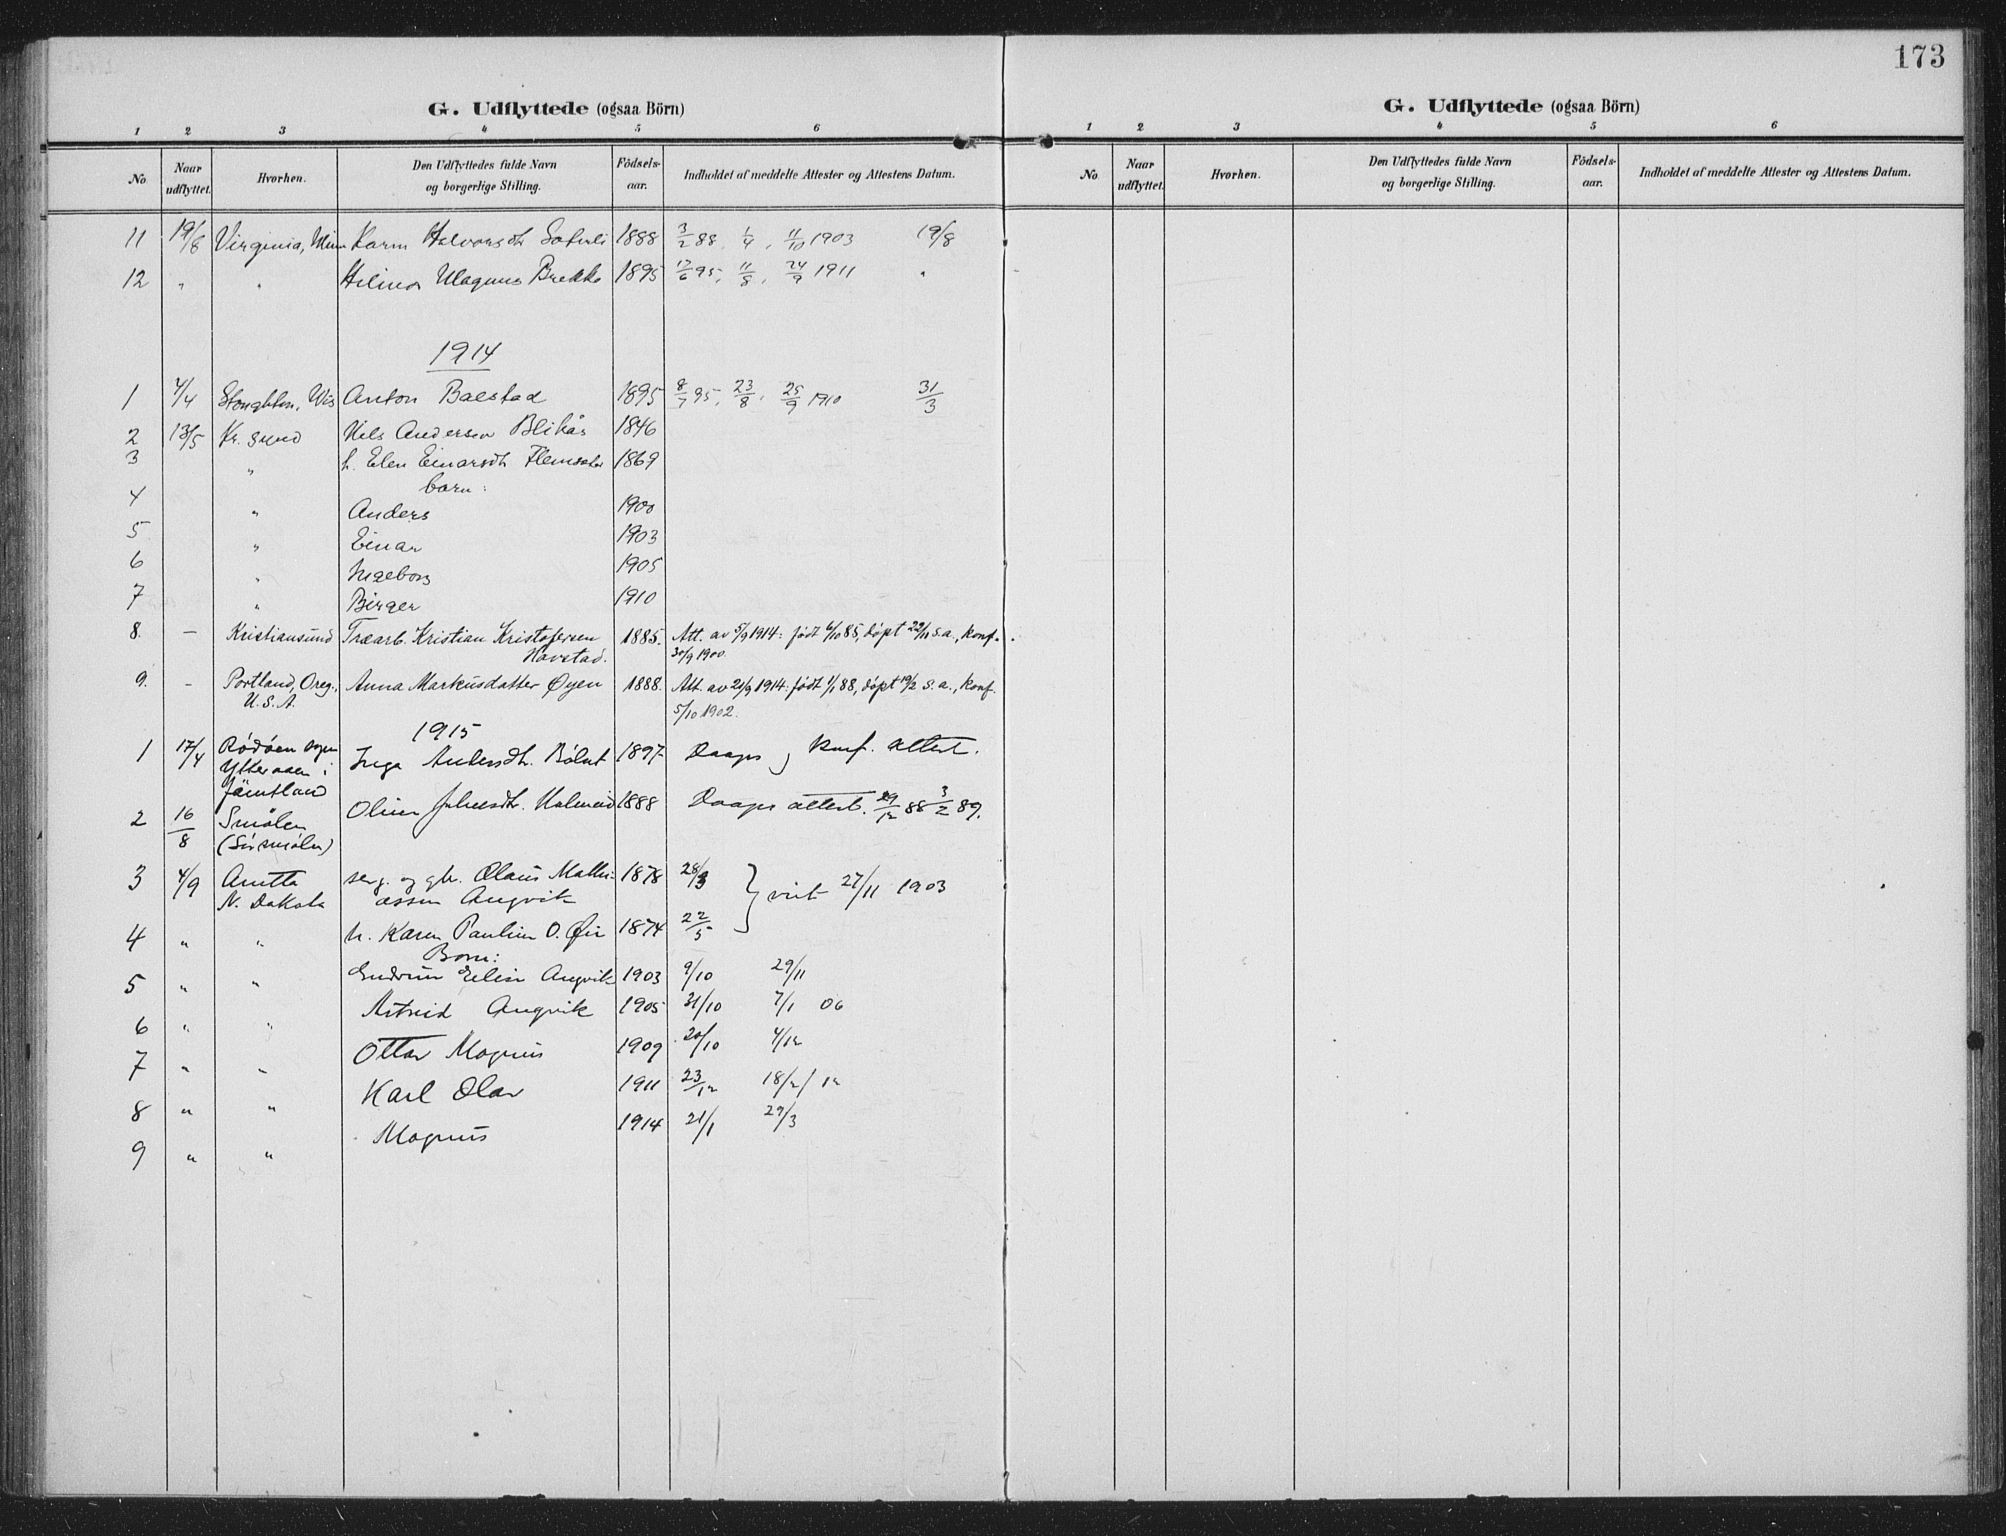 173
G. Udflyttede (ogsaa Börn)
1 2 3 4 5 6
No Naar udflyttet. Hvorhen. Den Udflyttedes fulde Navn og borgerlige Stilling. Födsels-aar. Indholdet af meddelte Attester og Attestens Datum.
11 19/8 Virginia, Minn Karen Halvorsdtr 1888 3/2 88, 1/4, 11/10 1903 19/8
12 " " Magnus Brekke 1895 /6 95, 11/8, 24/9 1911 "
1914
1 4/4 Stoughton, Wis Anton Balstad 1895 8/7 95, 23/8, 25/9 1910 31/3
2 13/5 Kr. sund Nils Andersen Blikås 1846
3 " h. Elen Einarsdtr 1869
born:
4 " Anders 1900
5 " Einar 1903
6 " Ingeborg 1905
7 " Birger 1910
8. – Kristiansund Træarb. Kristian Kristofersen 1885. Att. av 5/9 1914: født 6/10 85, døpt 22/11 s.a., konf.
Havstad. 30/9 1900.
9. – Portland, Oreg., Anna Markusdatter Øyen 1888. Att. av 21/9 1914: født 1/1 88, døpt 19/2 s.a., konf.
U.S.A. 5/10 1902.
1915
1 17/4 Rödöen sogn Inga Andersdtr. 1897 Daaps, konf. attest.
i
Jämtland
2 16/8 Smölen Julsdtr. 1888 Daaps attest. 29/12 88 3/2 89.
(Sörsmölen)
3 4/9 serg. og gbr. Olaus Mathi- 1878 28/3 } viet 27/11 1903
N. Dakota assen Angvik
4 " " h. Karen Pauline O. 1874 22/5
Born:
5 " " Gudrun Elise Angvik 1903 9/10 29/11
6 " " Astrid Angvik 1905 31/10 7/1 06
7 " " Ottar Magnus 1909 20/10 4/12
8 " " Karl Olav 1911 23/12 18/2/12
9 " " Magnus 1914 21/1 29/3
G. Udflyttede (ogsaa Börn)
1 2 3 4 5 6
No Naar udflyttet. Hvorhen. Den Udflyttedes fulde Navn og borgerlige Stilling. Födsels-aar. Indholdet af meddelte Attester og Attestens Datum.